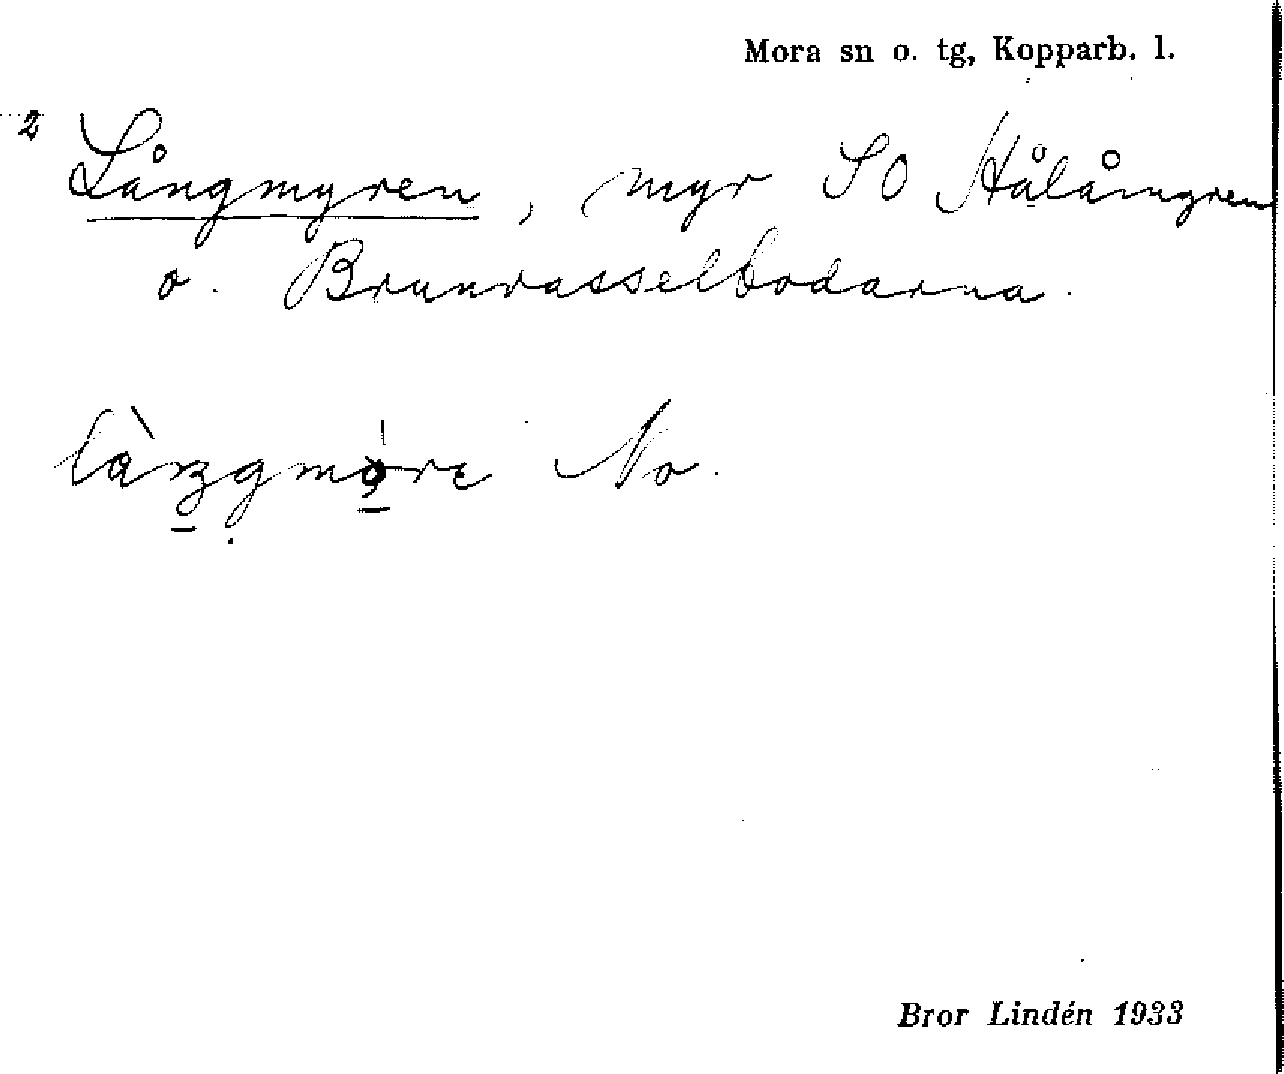 Mora sn o. tg, Kopparb. l.
2 Långmyren, myr SO Hålåmyren
o. Brunvasselbodarna.
No.
Bror Lindén 1933